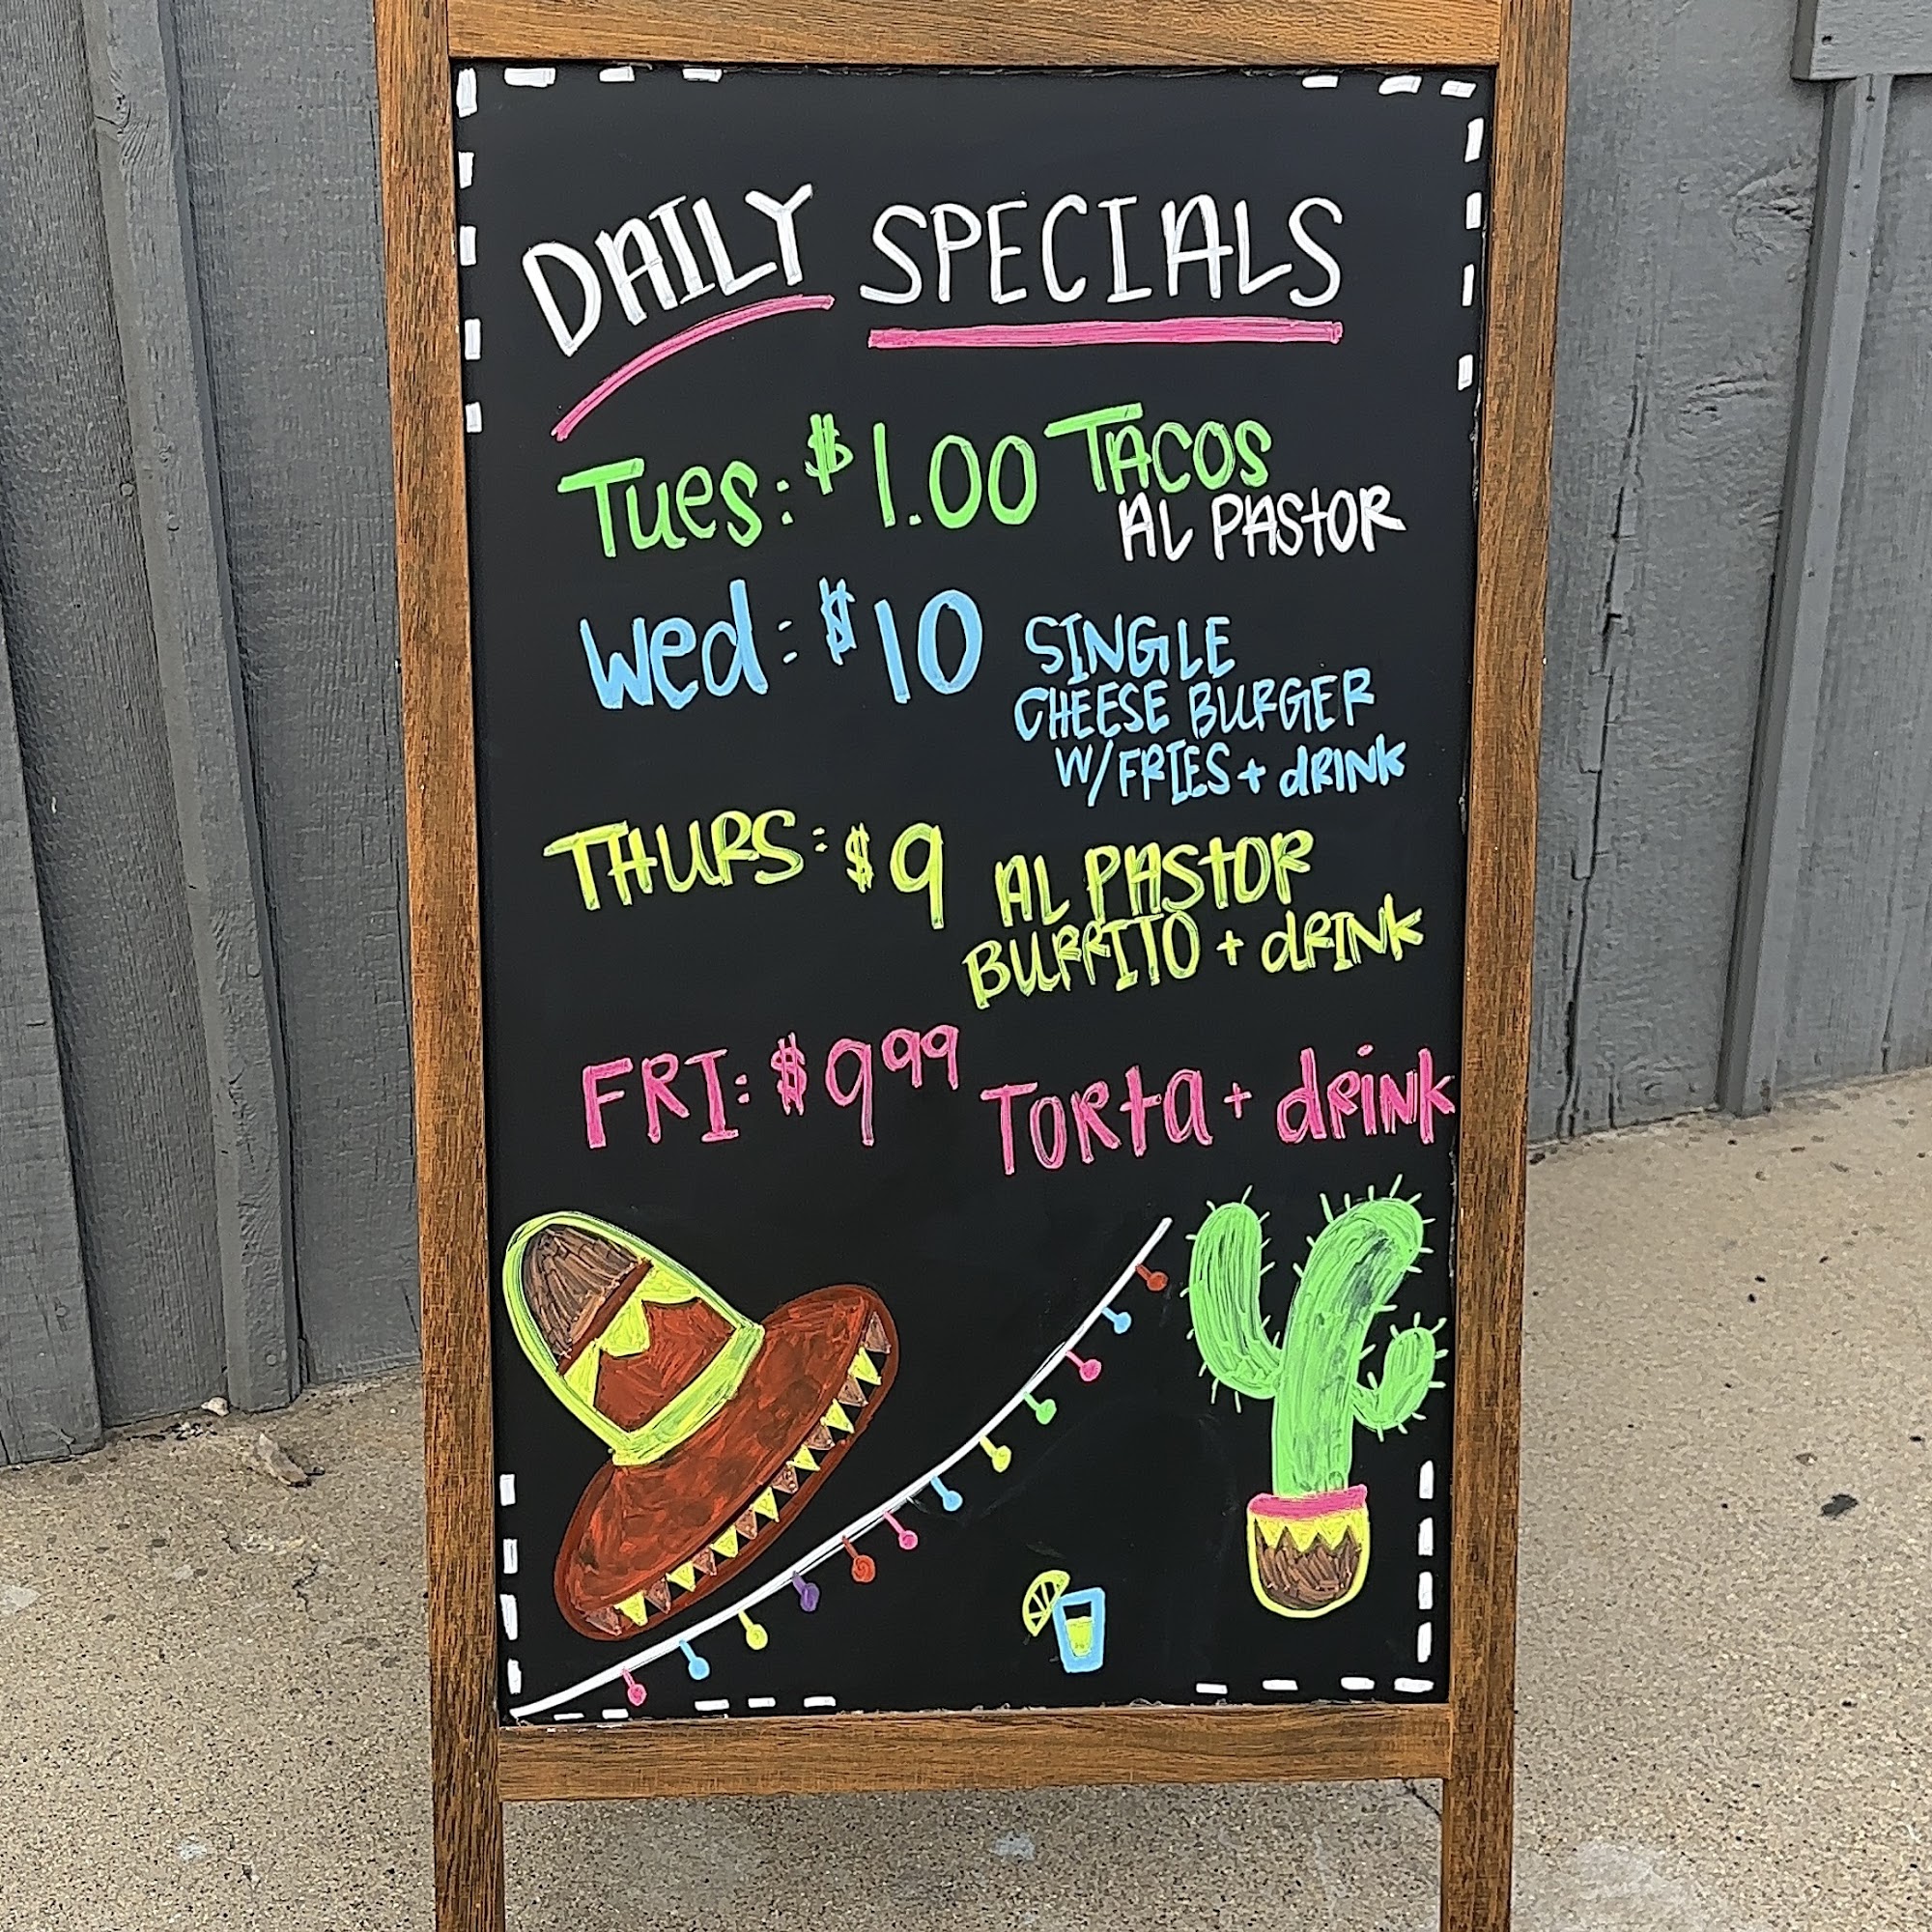 DAILY SPECIALS
Tues: $1.00 TACOS
AL PAStOR
Wed: $10 SINGLE
CHEESE BURGER
W/FRIES + dRINK
THURS: $9 AL PAStOR
BURRITO + dRINK
FRI: $9⁹⁹ TORta + dRink